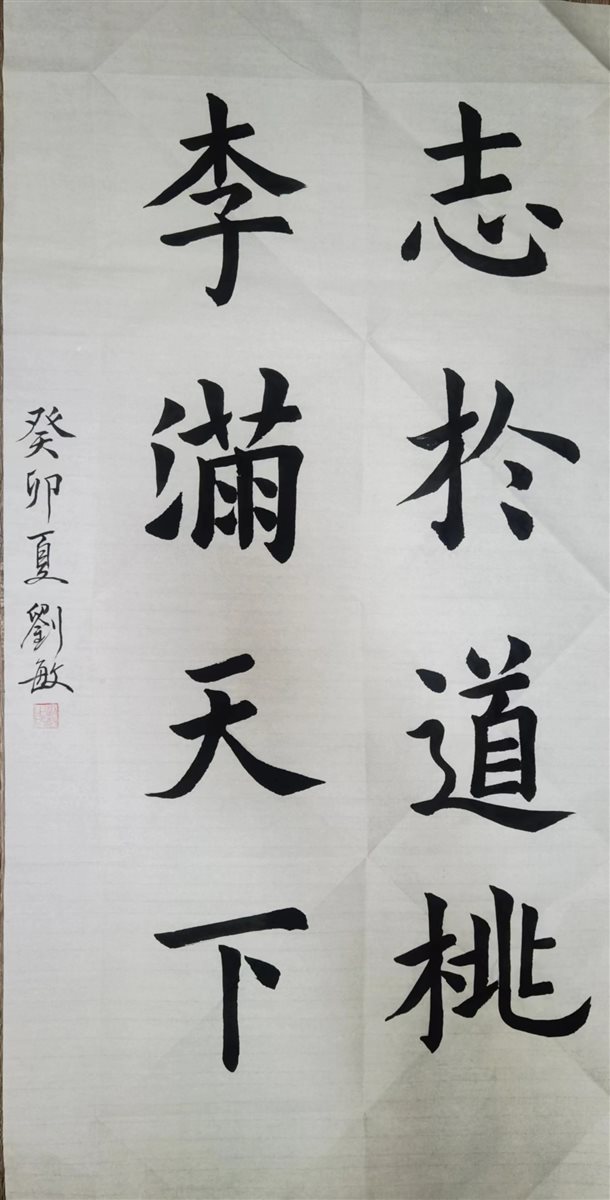 志於道桃
李滿天下
癸卯夏劉敏